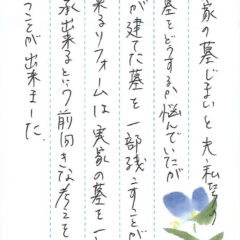 家の墓じまいと夫、私たちの
墓をどうするか悩んでいたが
が建てた墓を一部残すことが
来るリフォームは実家の墓を一
承出来るという前向きな考えを
つことが出来ました